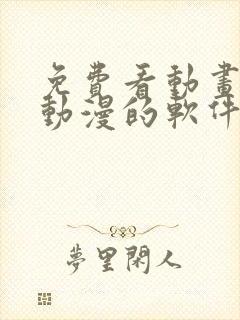 免費看動畫
動漫的軟件
夢里閑人